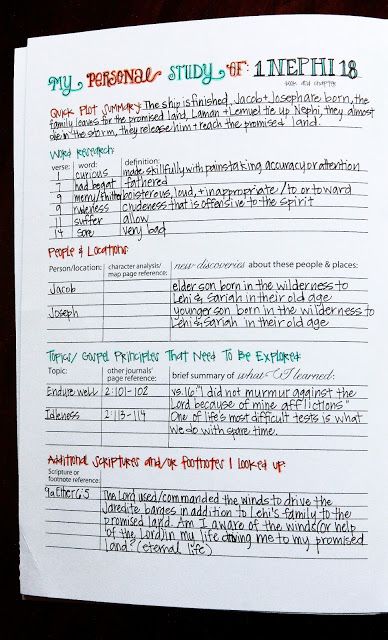 MY PERSONAL STUDY OF: 1 NEPHI 18
book and chapter
Quick Plot Summary: The ship is finished, Jacob + Joseph are born, the
family leaves for the promised land, Laman + Lemuel tie up Nephi, they almost
die in the storm, they release him + reach the promised land.
Word Research:
verse: word: definition:
1 curious made skillfully with painstaking accuracy or attention
7 had begat fathered
9 merry/thither boisterous, loud, + inappropriate / to or toward
9 rudeness crudeness that is offensive to the spirit
11 suffer allow
14 sore very bad
People & Locations:
Person/location: character analysis/ map page reference: new discoveries about these people & places:
Jacob elder son born in the wilderness to
Lehi & Sariah in their old age
Joseph younger son born in the wilderness to
Lehi & Sariah in their old age
Topics/ Gospel Principles That Need To Be Explored
Topic: other journals' page reference: brief summary of what I learned:
Endure well 2:101-102 vs. 16: "I did not murmur against the
Lord because of mine afflictions"
Idleness 2:113-114 One of life's most difficult tests is what
we do with spare time.
Additional Scriptures and/or footnotes I looked up:
Scripture or
footnote reference:
9a Ether 6:5 The Lord used/commanded the winds to drive the
Jaredite barges in addition to Lehi's family to the
promised land. Am I aware of the winds (or help
of the Lord) in my life driving me to my promised
land? (eternal life)